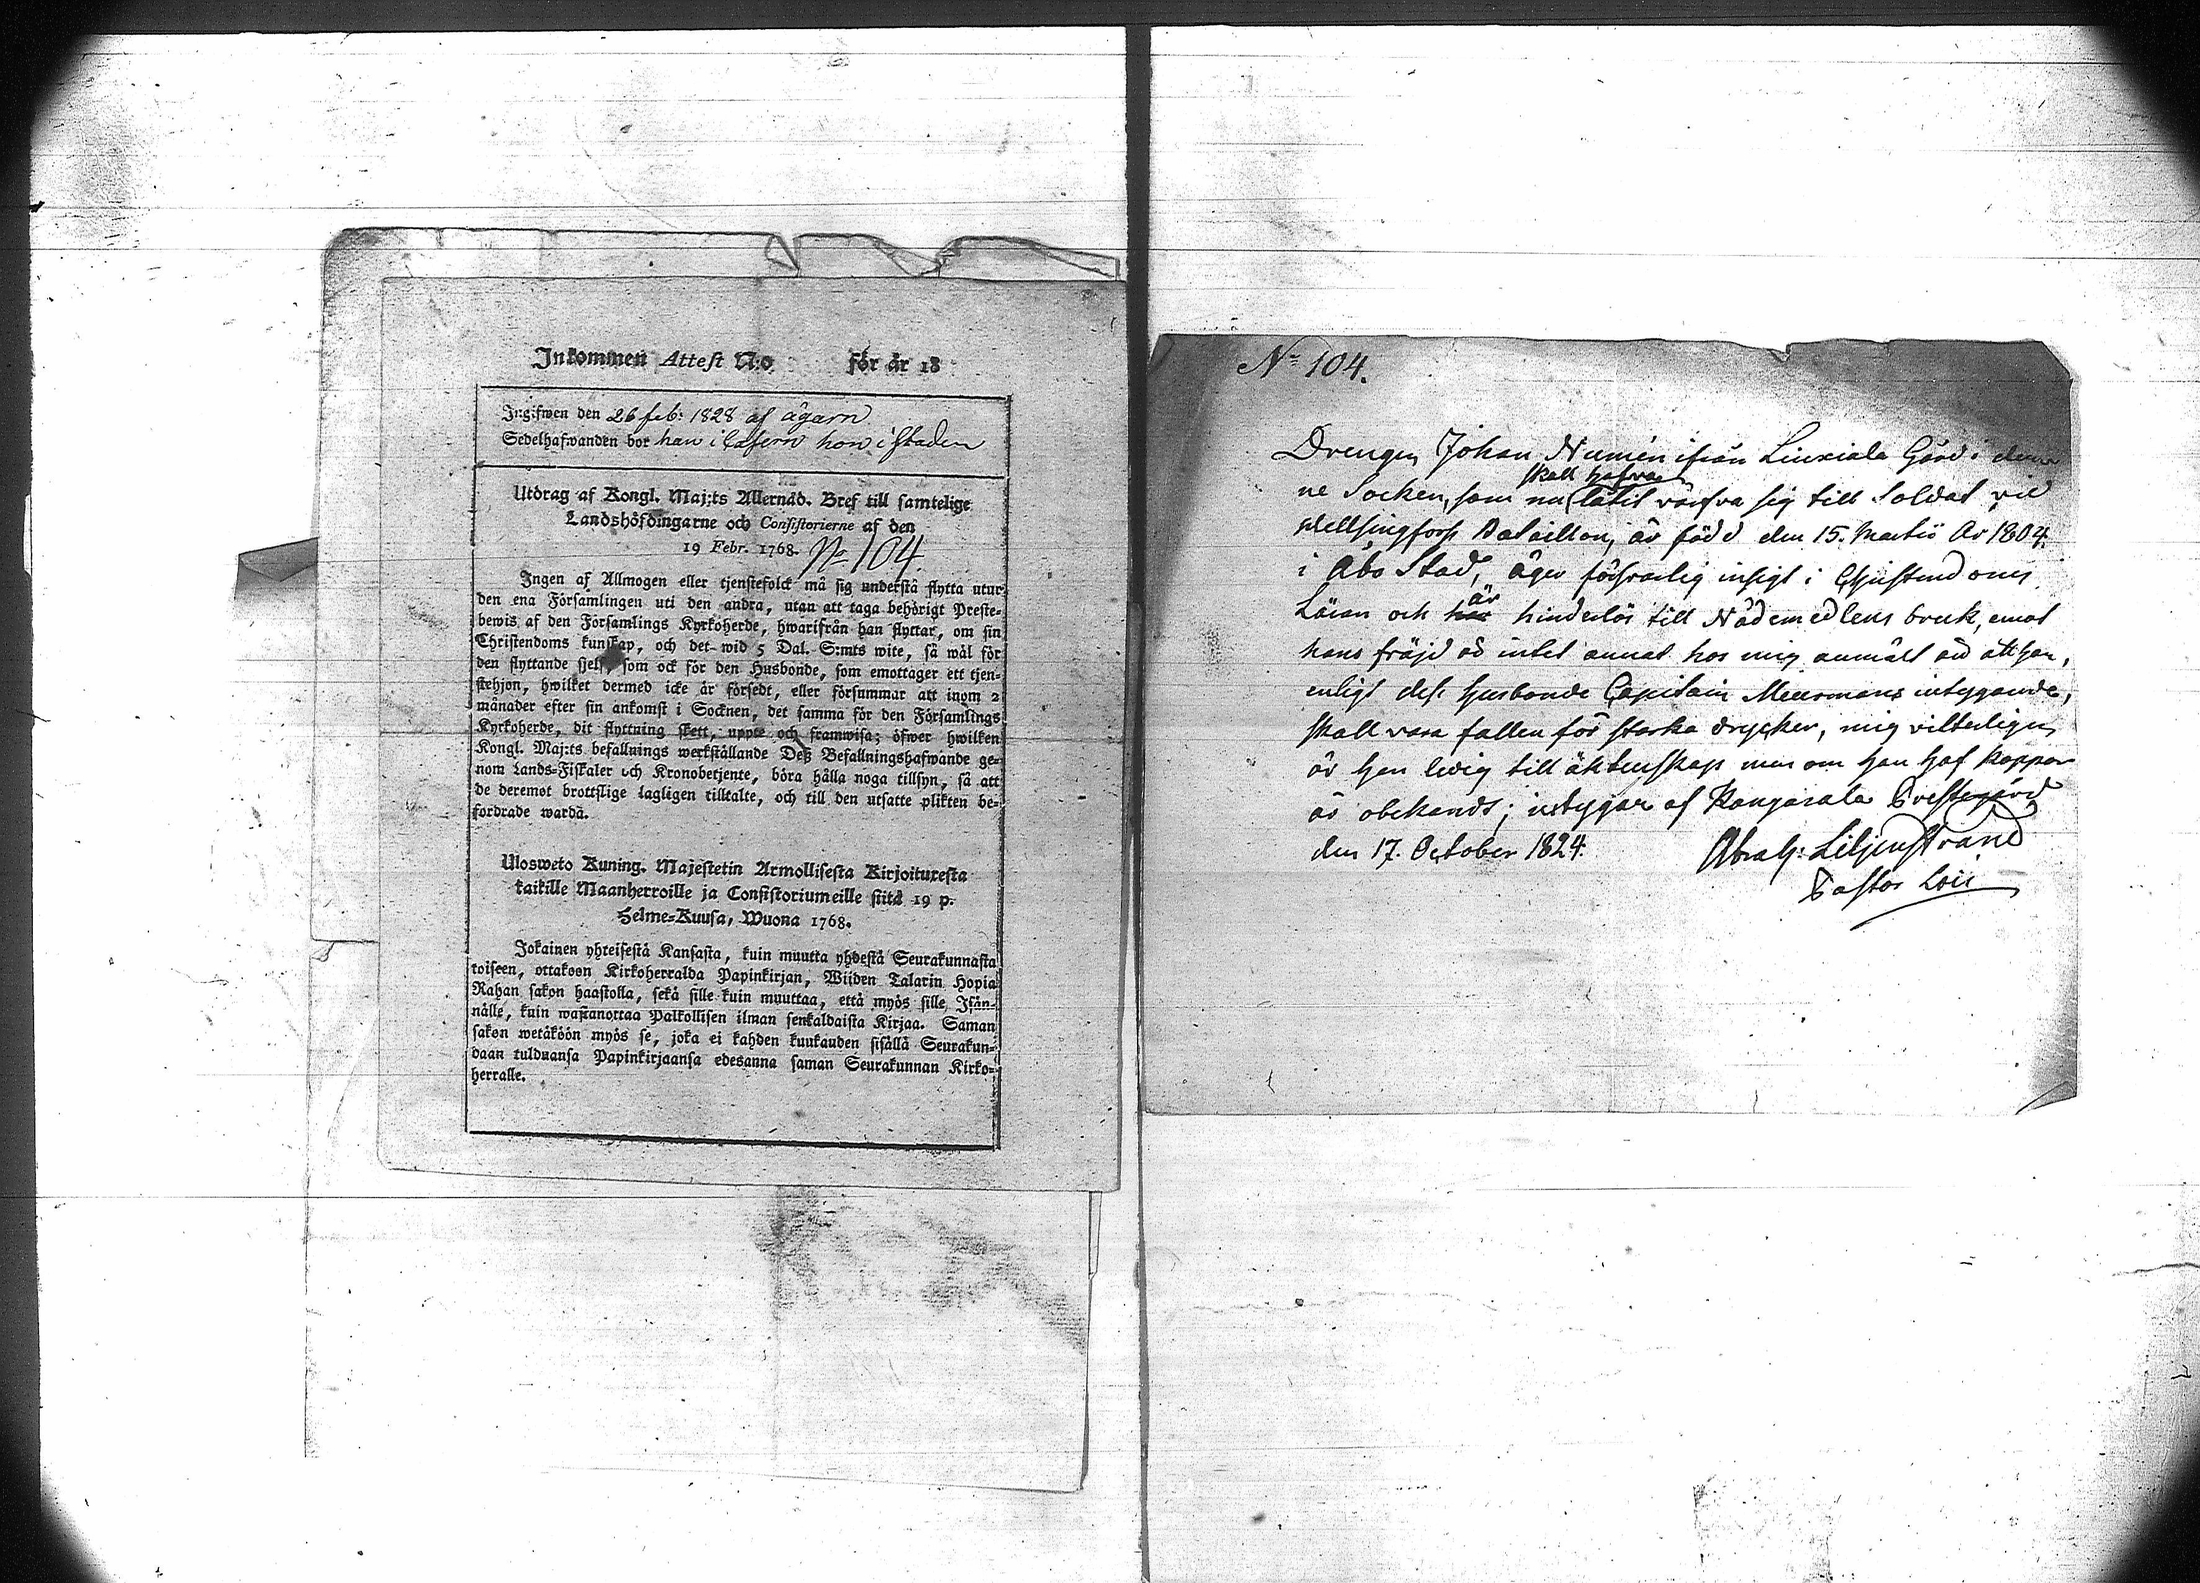 Inkommen Attest N:o för år 18
Ingifwen den 26 feb: 1828 af ägarn
Sedelhafwanden bor han i Casern hon i staden
Utdrag af Kongl. Maj:ts Allernåd. Bref till samtelige
Landshöfdingarne och Consistorierne af den
19 Febr. 1768. No 104.
Ingen af Allmogen eller tjenstefolck må sig understå flytta utur
den ena Församlingen uti den andra, utan att taga behörigt Preste-
bewis af den Församlings Kyrkoherde, hwarifrån han flyttar, om sin
Christendoms kunskap, och det wid 5 Dal. S:mts wite, så wäl för
den flyttande sjelf, som ock för den Husbonde, som emottager ett tjen-
stehjon, hwilket dermed icke är försedt, eller försummar att inom 2
månader efter sin ankomst i Socknen, det samma för den Församlings
Kyrkoherde, dit flyttning skett, uppte och framwisa; öfwer hwilken
Kongl. Maj:ts befallnings werkställande Deß Befallningshafwande ge-
nom Lands-Fiskaler och Kronobetjente, böra hålla noga tillsyn, så att
de deremot brottslige lagligen tilltalte, och till den utsatte plikten be-
fordrade warda.
Ulosweto Kuning. Majestetin Armollisesta Kirjoituresta
kaikille Maanherroille ja Consistoriumeille siitä 19 p.
Helme-Kuusa, Wuona 1768.
Jokainen yhteisestä Kansasta, kuin muutta yhdestä Seurakunnasta
toiseen, ottakoon Kirkoherralda Papinkirjan, Wiiden Talarin Hopia
Rahan sakon haastolla, sekä sille kuin muuttaa, että myös sille Isän-
nälle, kuin wastanottaa Palkollisen ilman senkaldaista Kirjaa. Saman
sakon wetäköön myös se, joka ei kahden kuukauden sisällä Seurakun-
daan tulduansa Papinkirjaansa edesanna saman Seurakunnan Kirko-
herralle.
No 104.
Drengen Johan Numén ifrån Liuxiala Gård i den-
skall hafva
ne Socken, som nu låtit värfva sig till Soldat vid
Hellsingfors Bataillon, är född den 15. Martii År 1804.
i Åbo Stad, äger försvarlig insigt i Christendoms
är
Läran och har hinderlös till Nådemedlens bruk, emot
hans fräjd är intet annat hos mig anmält än att han,
enligt dess husbonde Capitain Meurmans intygande,
skall vara fallen för starka drycker, mig vitterligen
är han ledig till äktenskap men om han haf koppor
är obekandt; intygar af Kangasala Prestegård
den 17. October 1824. Abrah: Liljenstrand
Pastor Loci